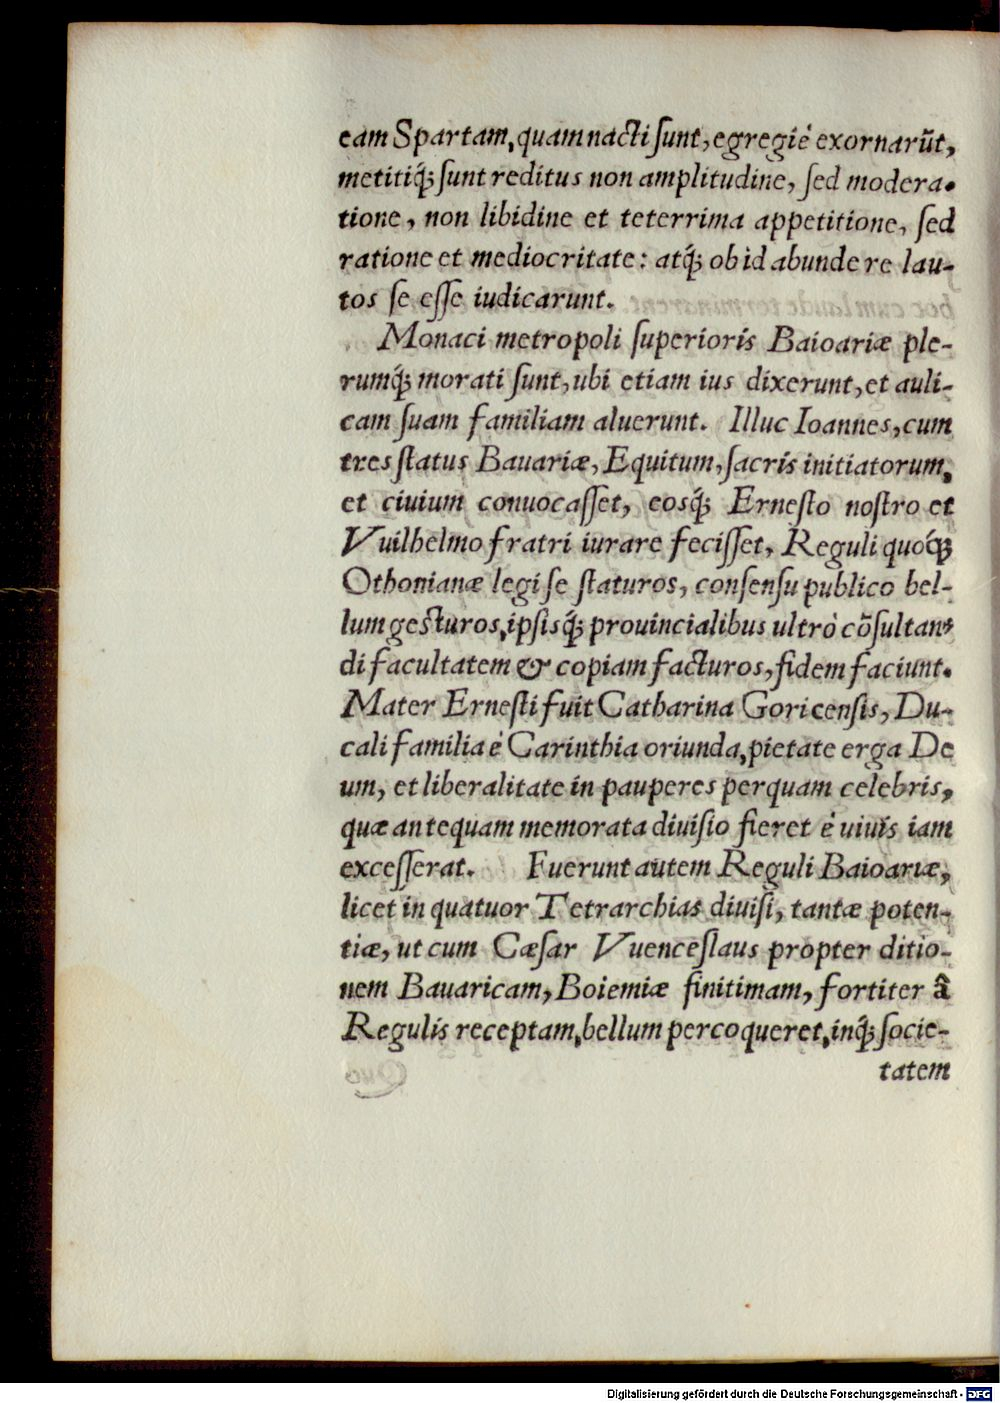 eam Spartam, quam nacti ſunt, egregiè exornarũt,
metitiq́ꝫ ſunt reditus non amplitudine, ſed modera-
tione, non libidine et teterrima appetitione, ſed
ratione et mediocritate: atq́ꝫ ob id abunde re lau-
tos ſe eſſe iudicarunt.
Monaci metropoli ſuperioris Baioariæ ple-
rumq́ꝫ morati ſunt, ubi etiam ius dixerunt, et auli-
cam ſuam familiam aluerunt. Illuc Ioannes, cum
tres ſtatus Bauariæ, Equitum, ſacris initiatorum,
et ciuium conuocaſſet, eosq́ꝫ Erneſto noſtro et
Vuilhelmo fratri iurare feciſſet, Reguli quoq́ꝫ
Othonianæ legi ſe ſtaturos, conſenſu publico bel-
lum geſturos, ipſisq́ꝫ prouincialibus ultrò cõſultan-
di facultatem & copiam facturos, fidem faciunt.
Mater Erneſti fuit Catharina Goricenſis, Du-
cali familia è Carinthia oriunda, pietate erga De
um, et liberalitate in pauperes perquam celebris,
quæ antequam memorata diuiſio fieret è uiuis iam
exceſſerat. Fuerunt autem Reguli Baioariæ,
licet in quatuor Tetrarchias diuiſi, tantæ poten-
tiæ, ut cum Cæſar Vuenceſlaus propter ditio-
nem Bauaricam, Boiemiæ finitimam, fortiter â
Regulis receptam, bellum percoqueret, inq́ꝫ ſocie-
tatem
Digitalisierung gefördert durch die Deutsche Forschungsgemeinschaft - DFG